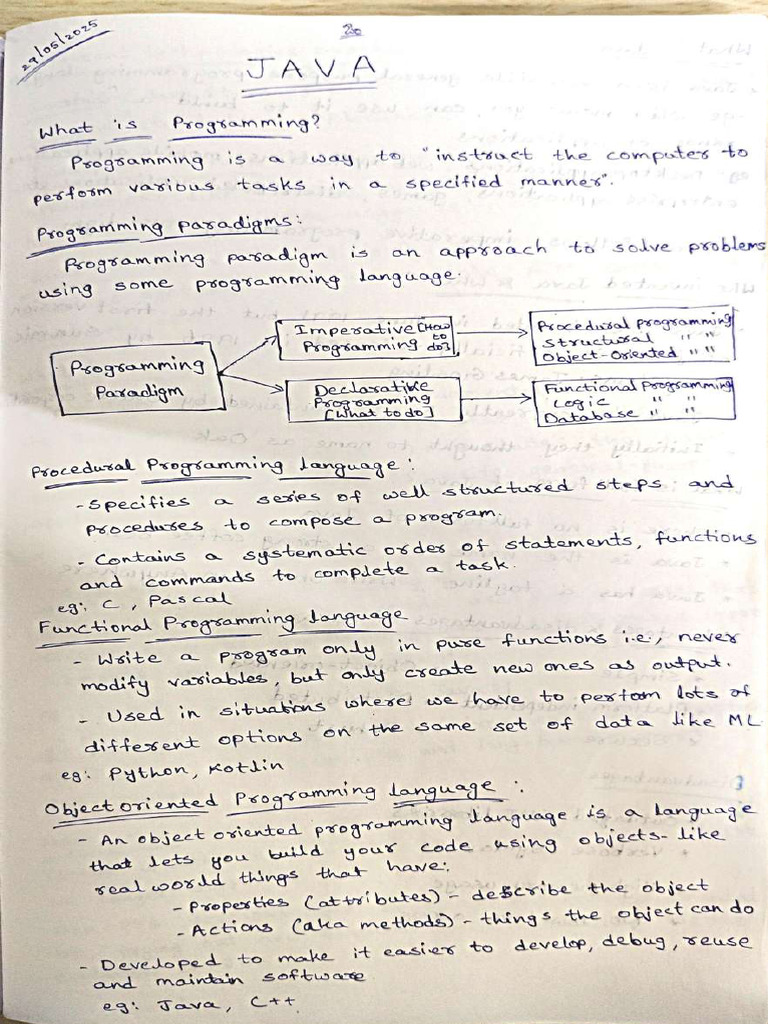 29/05/2025
JAVA
What is Programming?
Programming is a way to "instruct the computer to
perform various tasks in a specified manner".
Programming paradigms:
Programming paradigm is an approach to solve problems
using some programming language.
Programming
Paradigm
Imperative [How
Programming to
do]
Declarative
Programming
[What to do]
Procedural programming
Structural " "
Object-Oriented " "
Functional Programming
Logic " "
Database " "
Procedural Programming Language:
- Specifies a series of well structured steps and
procedures to compose a program.
- Contains a systematic order of statements, functions
and commands to complete a task.
eg: C, Pascal
Functional Programming Language
- Write a program only in pure functions i.e., never
modify variables, but only create new ones as output.
- Used in situations where we have to perform lots of
different options on the same set of data like ML
eg: Python, Kotlin
Object oriented Programming Language :
- An object oriented programming language is a language
that lets you build your code using objects - like
real world things that have:
- Properties (attributes) - describe the object
- Actions (aka methods) - things the object can do
- Developed to make it easier to develop, debug, reuse
and maintain software
eg: Java, C++